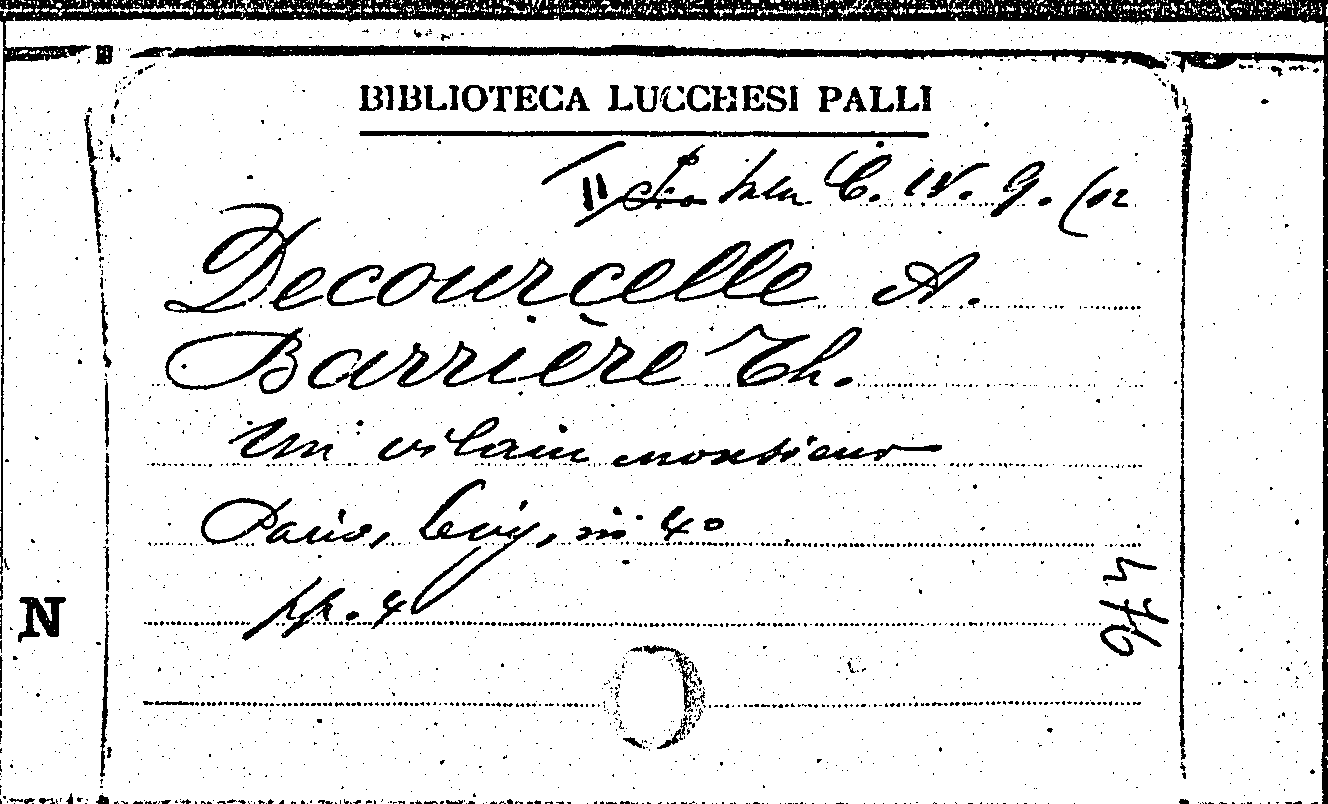 BIBLIOTECA LUCCHESI PALLI
II C. IV. 9. (12
Decourcelle A.
Barrière Th.
Un vilain monsieur
Paris, Levy, in 4°
pp. 4
N